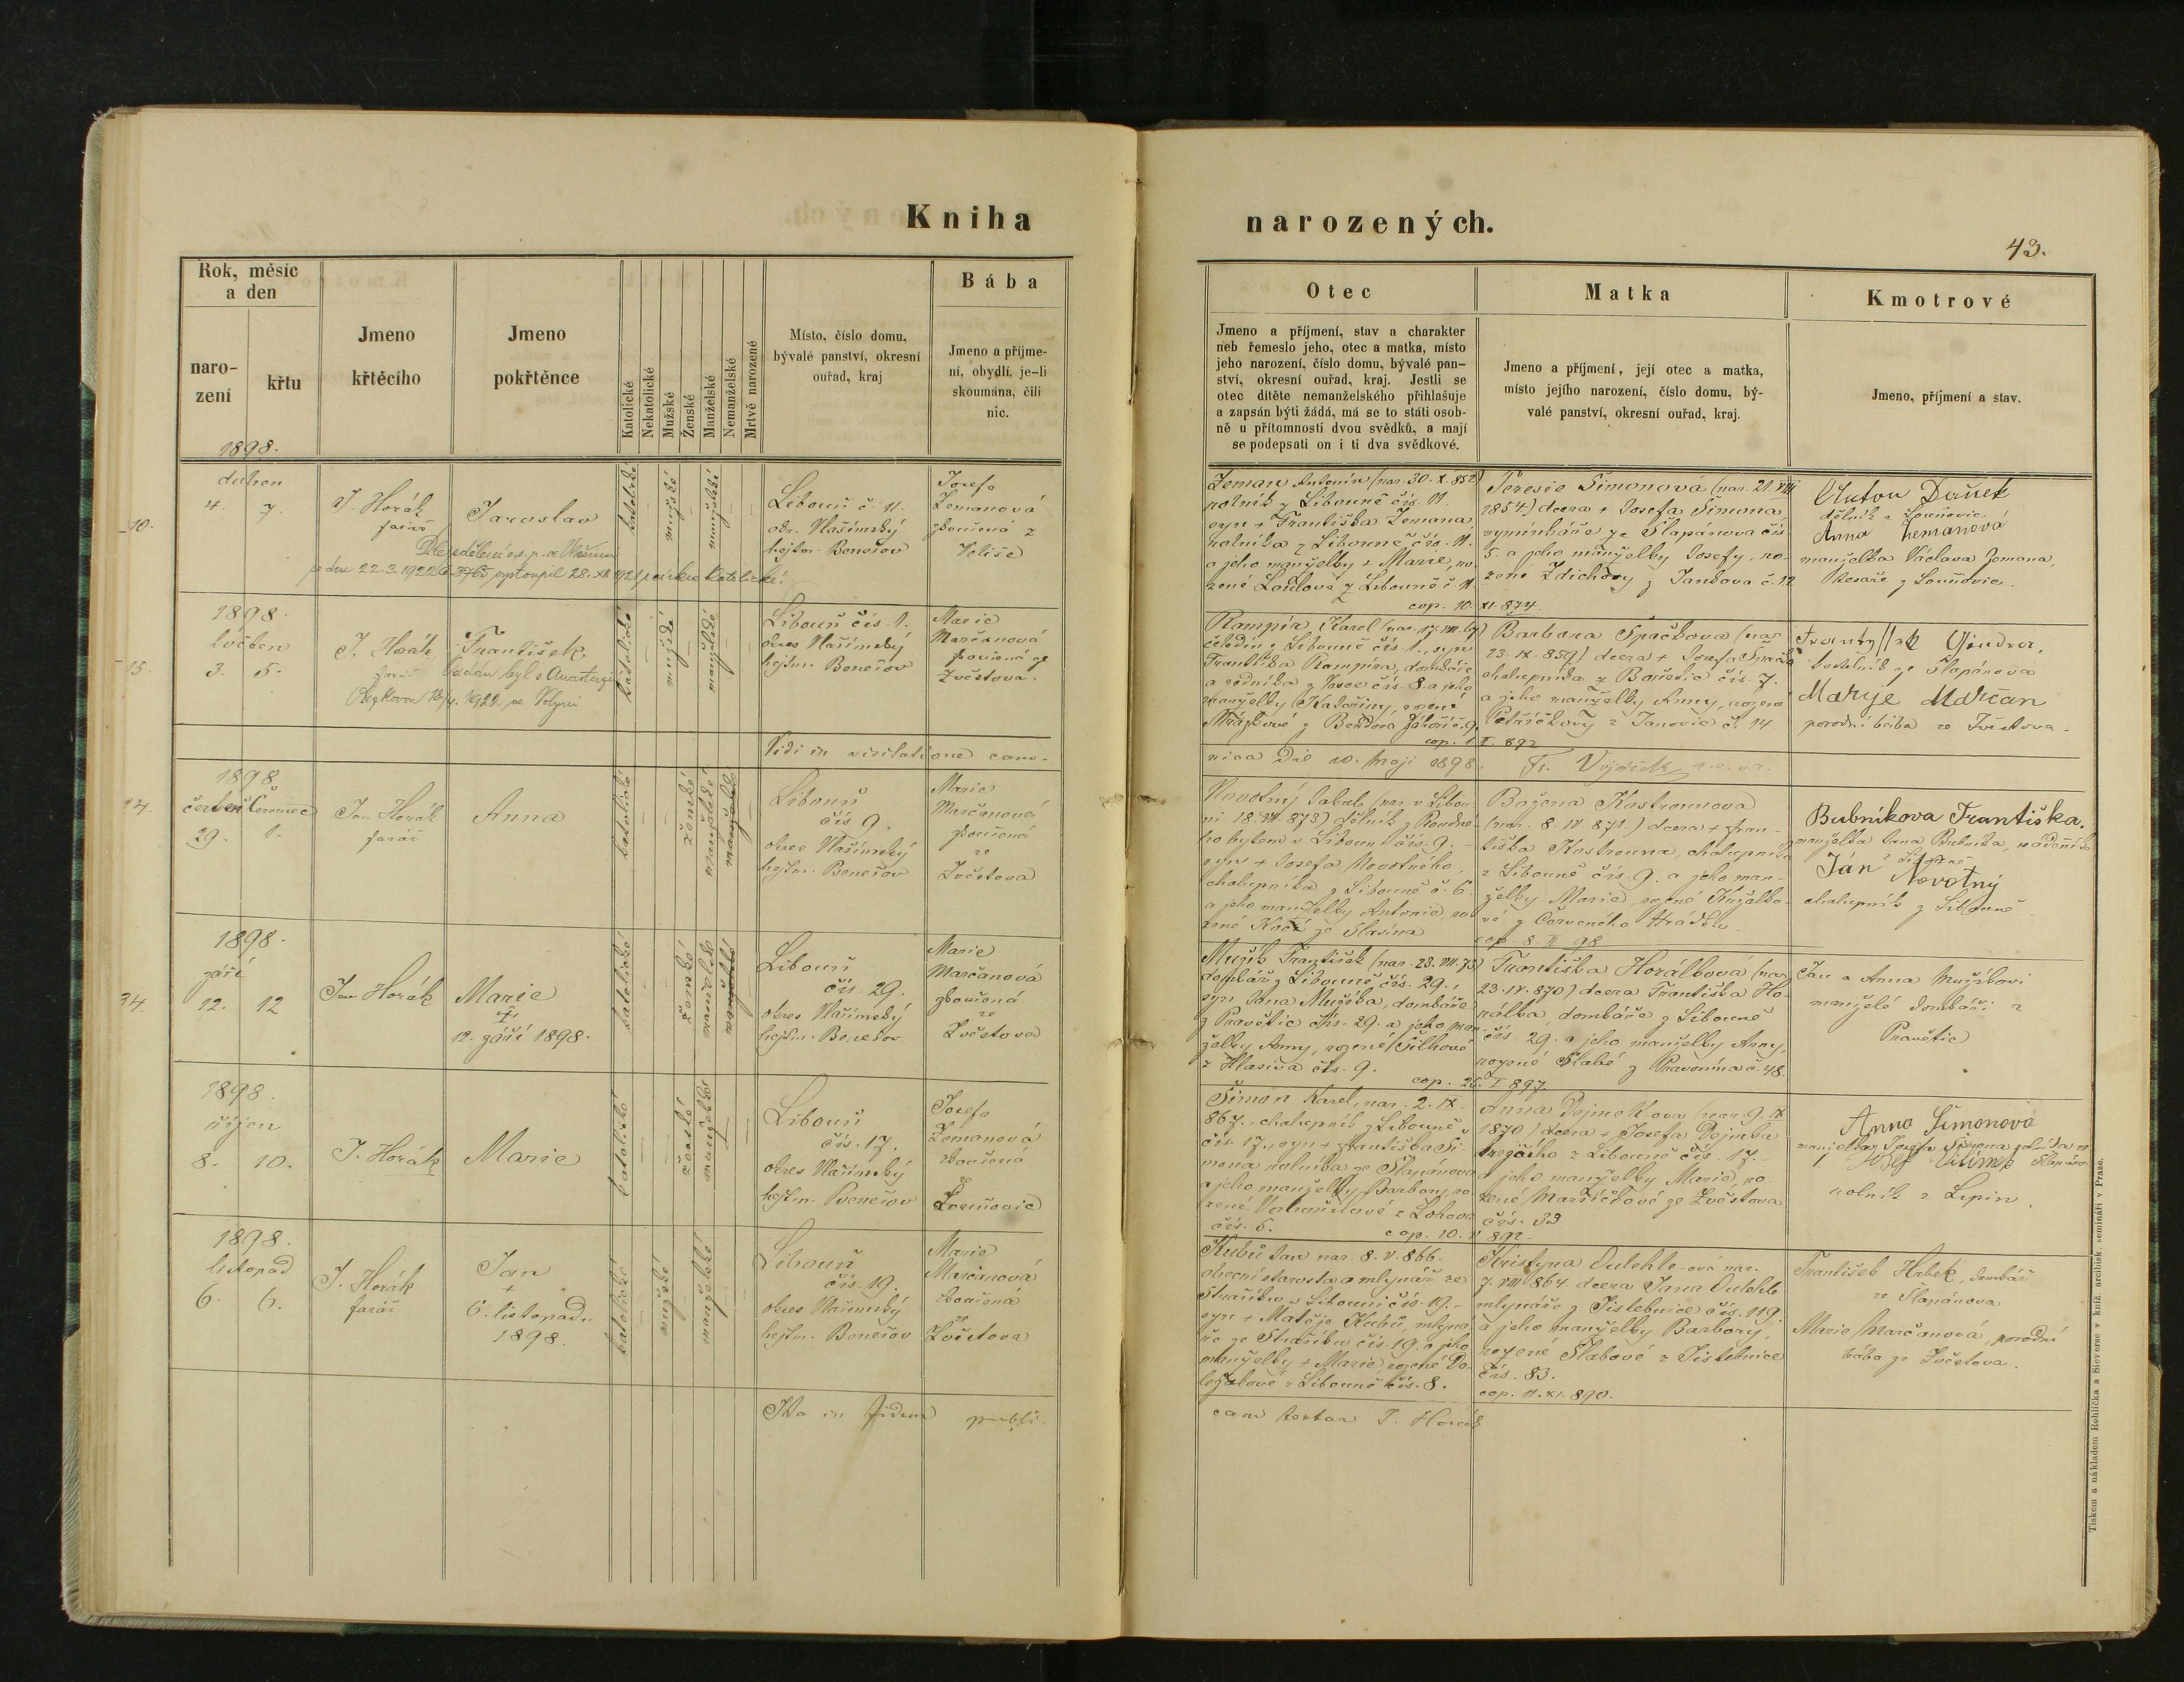 Kniha
narozených.
43.
Rok, měsíc
a den
naro-
zení
křtu
1898.
Jmeno
křtěcího
Jmeno
pokřtěnce
Katolické
Nekatolické
Mužské
Ženské
Manželské
Nemanželské
Mrtvě narozené
Místo, číslo domu,
bývalé panství, okresní
ouřad, kraj
Bába
Jmeno a příjme-
ní, obydlí, je-li
skoumána, čili
nic.
Otec
Jmeno a příjmení, stav a charakter
neb řemeslo jeho, otec a matka, místo
jeho narození, číslo domu, bývalé pan-
ství, okresní ouřad, kraj. Jestli se
otec dítěte nemanželského přihlašuje
a zapsán býti žádá, má se to státi osob-
ně u přítomnosti dvou svědků, a mají
se podepsati on i ti dva svědkové.
Matka
Jmeno a příjmení, její otec a matka,
místo jejího narození, číslo domu, bý-
valé panství, okresní ouřad, kraj.
Kmotrové
Jmeno, příjmení a stav.
10.
duben
4. 7.
J. Horák
farář
Jaroslav
katolické
mužské
manželské
Libouň č. 11.
okr. Vlašimský
hejtm. Benešov
Josefa
Zemanová
zkoušená z
Veliše
Zeman Antonín (nar. 30. X. 852)
rolník z Libouně čís. 11.
syn + Františka Zemana,
rolníka z Libouně čís. 11.
a jeho manželky + Marie, ro-
zené Loudové z Libouně č. 11
cop. 10. XI. 874.
Teresie Šimonová (nar. 21. VIII
1854) dcera + Josefa Šimona
výminkáře ze Slapánova čís
5. a jeho manželky Josefy, ro-
zené Zdichovy z Jankova č. 12
dělník z Louňovic
Anna Zemanová
manželka Václava Zemana,
tesaře z Louňovic.
28. XII 1921 z církve katolické.
15.
1898.
květen
3. 5.
J. Horák
farář
František
katolické
mužské
manželské
Libouň čís. 1.
okres Vlašimský
hejtm. Benešov
Marie
Marčanová
zkoušená ze
Zvěstova.
Rampír Karel
čeledín z Libouně čís. 1., syn
Františka Rampíra, domkáře
a jeho
manželky Kateřiny, rozené
cop. I. 892
Barbora Špačkova (nar.
23. IX. 859) dcera + Josefa Špačka
chalupníka z Bořetic čís. 7.
a jeho manželky Anny, rozené
z Janovic č. 14
ze Slapánova
Marije Marčan
porodní bába ze Zvěstova.
Vidi in visitatione cano-
nica die 10. Maji 1898
1898
červen červenec
29. 1.
Jan Horák
farář
Anna
katolické
ženské
manželské
manželské
Libouň
čís 9.
okres Vlašimský
hejtm. Benešov
Marie
Marčanová
zkoušená
ze
Zvěstova
Novotný Jakub (nar. v Libou-
ni 18. VII. 873) dělník z Roudné-
ho bytem v Libouni čís. 9. -
syn + Josefa Novotného,
chalupníka z Libouně č. 6
a jeho manželky Antonie, ro-
zené
Božena Kostrounova
(nar. 8. IV 871.) dcera + Fran-
tiška Kostrouna, chalupníka
z Libouně čís. 9. a jeho man-
želky Marie, rozené
vé z Červeného Hrádku.
cop. 8. II 98
Bubníkova Františka.
manželka Jana Bubníka, nádeníka
z Libouně
Ján Novotný
chalupník z Libouně
34.
1898.
září
12. 12
Jan Horák
Marie
+
12. září 1898.
katolické
ženské
manželské
Libouň
čís. 29.
okres Vlašimský
hejtm. Benešov
Marie
Marčanová
zkoušená
ze
Zvěstova
Mužík František (nar. 23. VII. 73)
domkář z Libouně čís. 29.,
syn Jana Mužíka, domkáře
z Pravětic čís. 29. a jeho man-
želky Anny, rozené
z Hlasiva čís. 9.
cop. 26. I 897.
Františka Horálkova (nar.
23. IV. 870) dcera Františka Ho-
rálka, domkáře z Libouně
čís. 29. a jeho manželky Anny,
rozené Slabé z Pravonína č. 48.
Jan a Anna Mužíkovi
manželé domkáři z
Pravětic
1898.
říjen
8. 10.
J. Horák
Marie
katolické
ženské
manželské
Libouň
čís. 17.
okres Vlašimský
hejtm. Benešov
Josefa
Zemanová
zkoušená
ze
Louňovic
Šimon Karel, nar. 2. IX.
867., chalupník z Libouně
čís. 17., syn + Františka Ši-
mona rolníka ze Slapánova
a jeho manželky Barbory, ro-
zené
čís. 6.
cop. 10. V 892.
(nar. 9. IX
1870) dcera + Josefa
krejčího z Libouně čís. 17. -
a jeho manželky Marie, ro-
zené Maršíčkové ze Zvěstova
čís. 33
Anna Šimonová
manželka Josefa Šimona, rolníka ze
Slapánova
Josef Vilímek
rolník z Lipin.
1898.
listopad
6. 6.
J. Horák
farář
Jan
+
6. listopadu
1898.
katolické
mužské
manželské
Libouň
čís. 19.
okres Vlašimský
hejtm. Benešov
Marie
Marčanová
zkoušená
ze
Zvěstova
Kubů Jan nar. 8. V. 866.
obecní starosta a mlynář ze
v Libouni čís. 19. -
syn + Matěje Kubů, mlyná-
ře čís. 19. a jeho
manželky + Marie, rozené Do-
ležalové z Libouně čís. 8.
Kristyna Dulehle-ová nar.
7. VIII 864. dcera Jana Dulehle
mlynáře z Jistebnice čís. 119
a jeho manželky Barbory,
rozené Slabové z Jistebnice
čís. 83.
cop. 11. XI. 890.
František Hrbek, domkář
ze Slapánova
Marie Marčanová, porodní
bába ze Zvěstova.
Ita in fidem publi-
cam testor J. Horák
Tiskem a nákladem Rohlíčka a Sieverse v kníž. arcibisk. semináři v Praze.